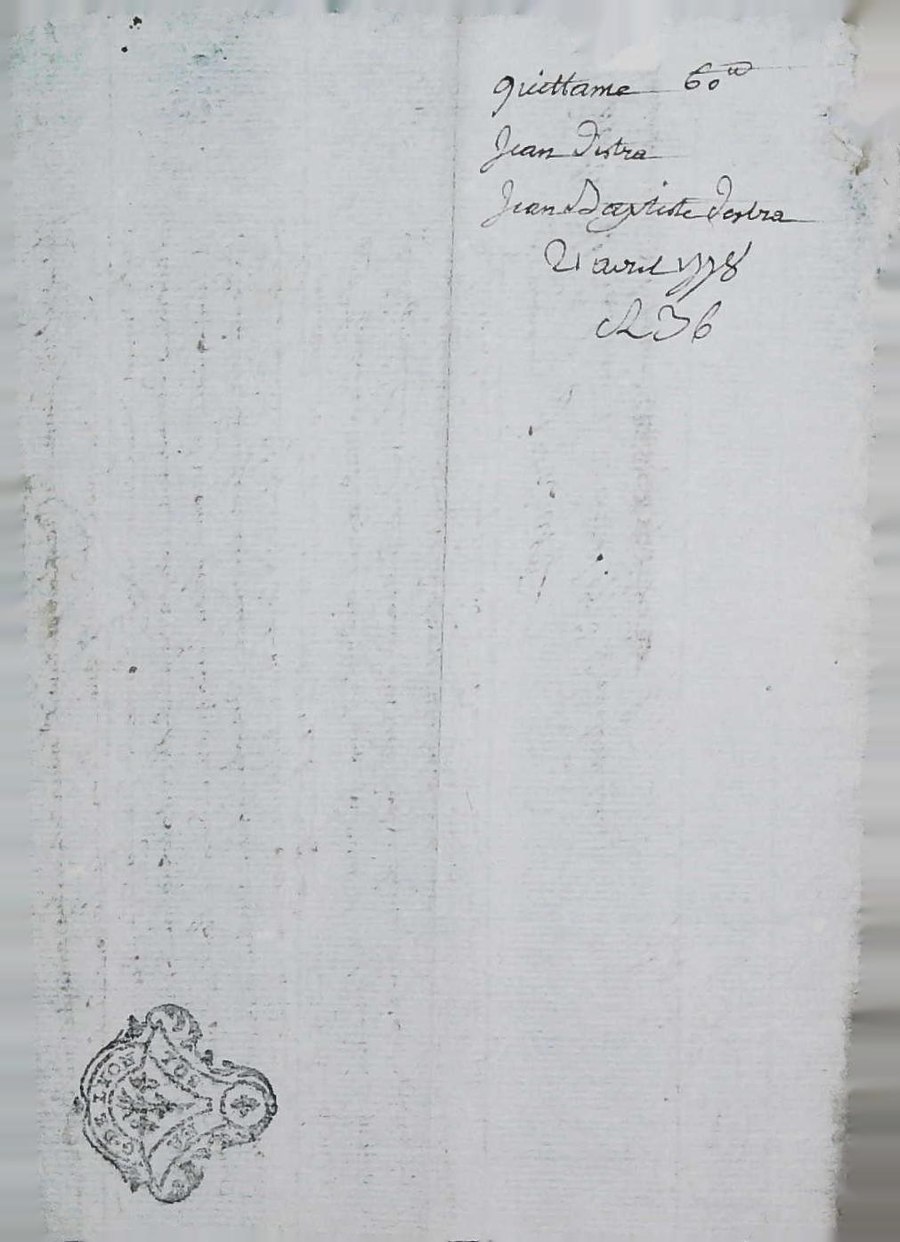 quittance 60ᵗᵗ
Jean Distra
Jean Baptiste Destra
21 avril 1778